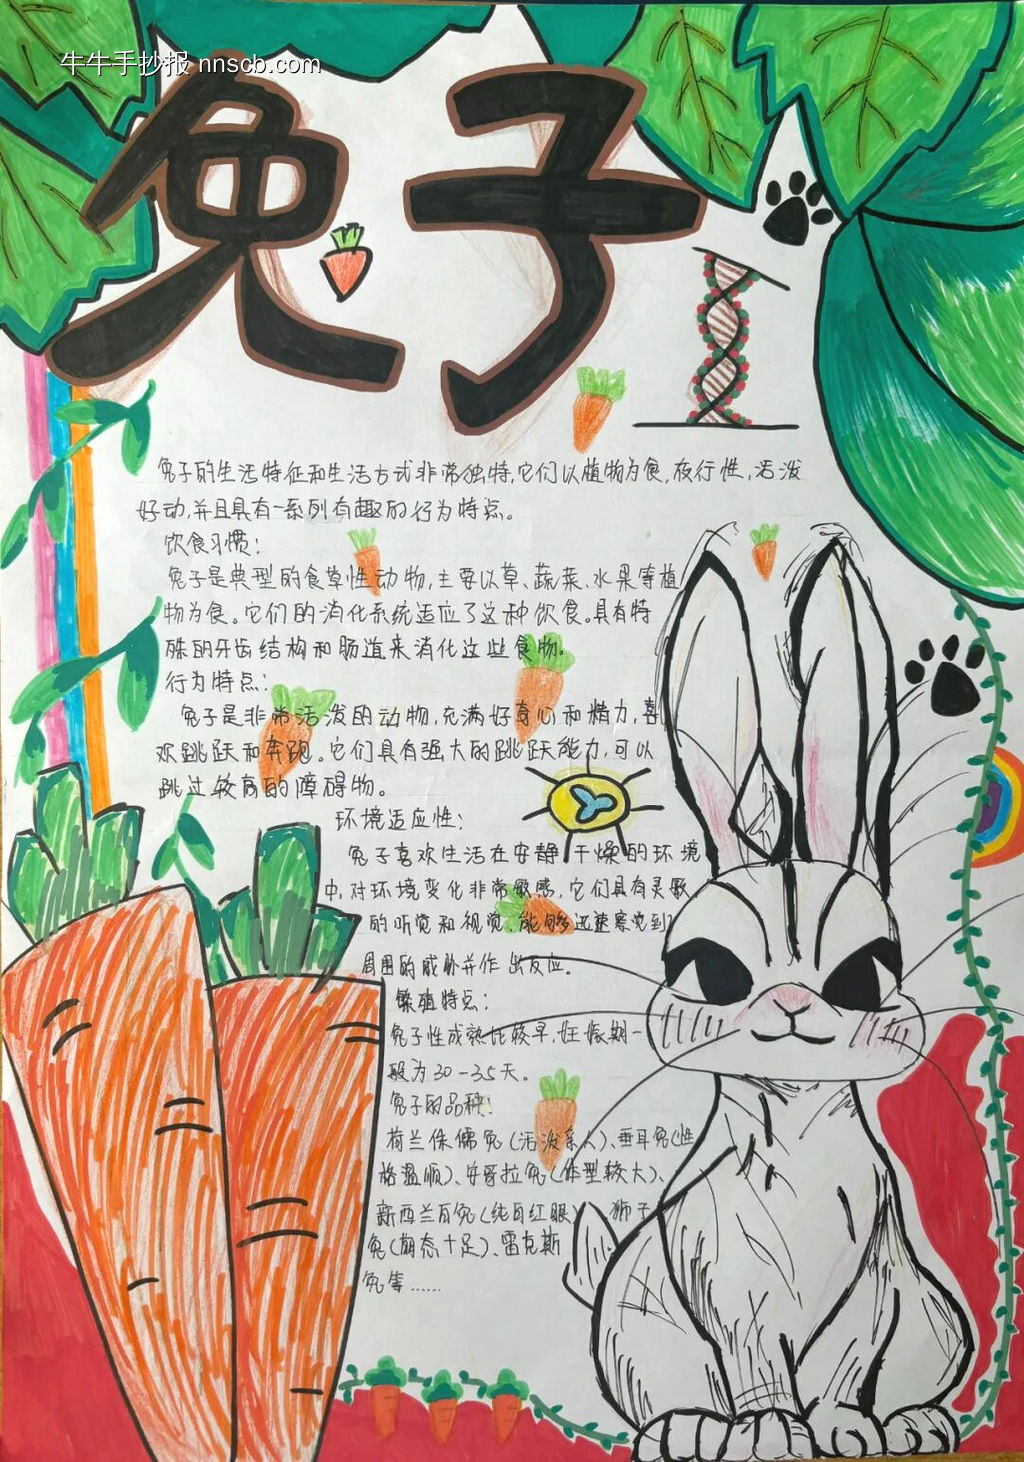 牛牛手抄报 nnscb.com
兔子
兔子的生活特征和生活方式非常独特,它们以植物为食,夜行性,活泼
好动,并且具有一系列有趣的行为特点。
饮食习惯:
兔子是典型的食草性动物,主要以草、蔬菜、水果等植
物为食。它们的消化系统适应了这种饮食。具有特
殊的牙齿结构和肠道来消化这些食物。
行为特点:
兔子是非常活泼的动物,充满好奇心和精力,喜
欢跳跃和奔跑。它们具有强大的跳跃能力,可以
跳过较高的障碍物。
环境适应性:
兔子喜欢生活在安静,干燥的环境
中,对环境变化非常敏感,它们具有灵敏
的听觉和视觉,能够迅速察觉到
周围的威胁并作出反应。
繁殖特点:
兔子性成熟比较早,妊娠期一
般为30-35天。
兔子的品种:
荷兰侏儒兔(活泼亲人)、垂耳兔(性
格温顺)、安哥拉兔(体型较大)、
新西兰白兔(纯白红眼)、狮子
兔(萌态十足)、雷克斯
兔等......